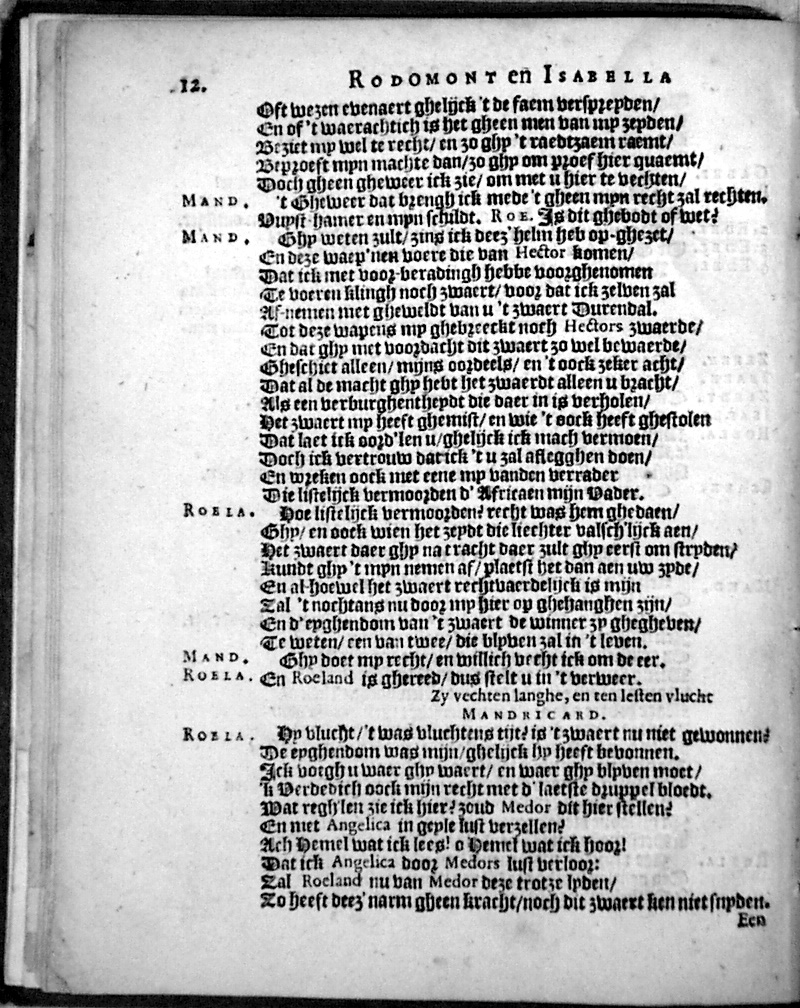 12. RODOMONT en ISABELLA
Oft wezen evenaert ghelijck 't de faem verspreyden/
En of 't waerachtich is het gheen men van my zeyden/
Beziet my wel te recht/ en zo ghy 't raedtzaem raemt/
Beproeft mijn machte dan/ zo ghy om proef hier quaemt/
Doch gheen gheweer ick zie/ om met u hier te vechten/
MAND. 't Gheweer dat brengh ick mede 't gheen mijn recht zal rechten.
Vuyst-hamer en mijn schildt. ROE. Is dit ghebodt of wet?
MAND. Ghy weten zult/ zins ick deez' helm heb op-ghezet/
En deze waep'nen voere die van Hector komen/
Dat ick met voor-beradingh hebbe voorghenomen
Te voeren klingh noch zwaert/ voor dat ick zelven zal
Af-nemen met gheweldt van u 't zwaert Durendal.
Tot deze wapens my ghebreeckt noch Hectors zwaerde/
En dat ghy met voordacht dit zwaert zo wel bewaerde/
Gheschiet alleen/ mijns oordeels/ en 't oock zeker acht/
Dat al de macht ghy hebt het zwaerdt alleen u bracht/
Als een verburghentheydt die daer in is verholen/
Het zwaert my heeft ghemist/ en wie 't oock heeft ghestolen
Dat laet ick oord'len u/ ghelijck ick mach vermoen/
Doch ick vertrouw dat ick 't u zal aflegghen doen/
En wreken oock met eene my vanden verrader
Die listelijck vermoorden d' Africaen mijn Vader.
ROELA. Hoe listelijck vermoorden? recht was hem ghedaen/
Ghy/ en oock wien het zeydt die liechter valsch'lijck aen/
Het zwaert daer ghy na tracht daer zult ghy eerst om stryden/
Kundt ghy 't mijn nemen af/ plaetst het dan aen uw zyde/
En al-hoewel het zwaert rechtvaerdelijck is mijn
Zal 't nochtans nu door my hier op ghehanghen zijn/
En d' eyghendom van 't zwaert de winner zy ghegheven/
Te weten/ een van twee/ die blyven zal in 't leven.
MAND. Ghy doet my recht/ en willich vecht ick om de eer.
ROELA. En Roeland is ghereed/ dus stelt u in 't verweer.
Zy vechten langhe, en ten lesten vlucht
MANDRICARD.
ROELA. Hy vlucht/ 't was vluchtens tijt? is 't zwaert nu niet gewonnen?
De eyghendom was mijn/ ghelijck hy heeft bevonnen.
Ick volgh u waer ghy waert/ en waer ghy blyven moet/
'k Verdedich oock mijn recht met d' laetste druppel bloedt.
Wat regh'len zie ick hier? zoud Medor dit hier stellen?
En met Angelica in geyle lust verzellen?
Ach Hemel wat ick lees! o Hemel wat ick hoor!
Dat ick Angelica door Medors lust verloor:
Zal Roeland nu van Medor deze trotze lyden/
Zo heeft deez' narm gheen kracht/ noch dit zwaert ken niet snyden.
Een